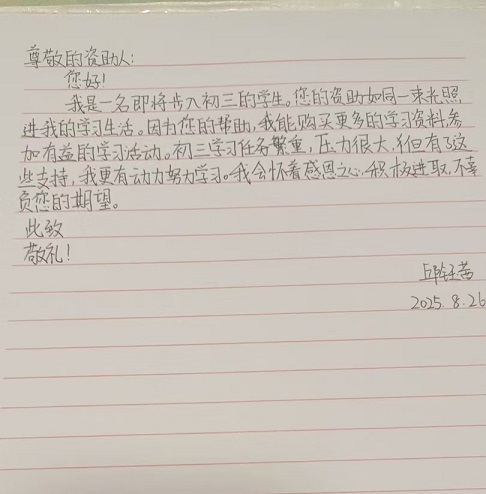 尊敬的资助人：
您好！
我是一名即将步入初三的学生。您的资助如同一束光照
进我的学习生活。因为您的帮助，我能购买更多的学习资料参
加有益的学习活动。初三学习任务繁重，压力很大，但有了这
些支持，我更有动力努力学习。我会怀着感恩之心，积极进取，不辜
负您的期望。
此致
敬礼！
邱钰茜
2025.8.26